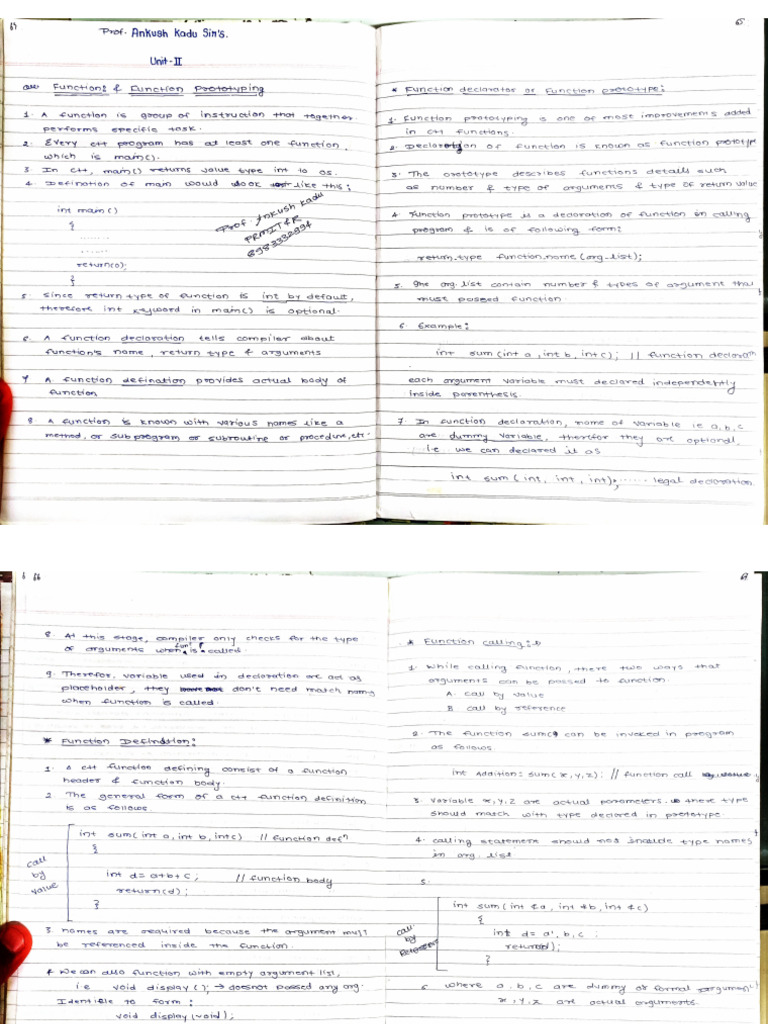 64
Prof. Ankush Kadu Sir's.
Unit-II
Functions & Function Prototyping
1. A function is group of instruction that together
performs specific task.
2. Every c++ program has at least one function
which is main().
3 In C++, main() returns value type int to os.
4. Defination of main would look like this;
int main()
{
........
......
return(0);
}
Prof. Ankush Kadu
PRMIT&R
8983332994
5. since return type of function is int by default,
therefore int keyword in main() is optional.
6. A function declaration tells compiler about
function's name, return type & arguments
7 A function defination provides actual body of
function
8. A function is known with various names like a
method, or sub program or subroutine or procedure, etc.
65
* Function declarator or Function prototype:
1. Function prototyping is one of most improvements added
in c++ functions.
2. Declaration of function is known as function prototype
3. The prototype describes functions details such
as number & type of arguments & type of return value
4 Function prototype is a declaration of function in calling
program & is of following form:
return.type function.name (arg-list);
5. The arg.list contain number & types of argument that
must passed function.
6. Example:
int sum (int a, int b, int c); // function declaratn
each argument variable must declared independently
inside parenthesis.
7. In function declaration, name of variable ie a, b, c
are dummy variable, therfor they are optionl.
i.e. we can declared it as
int sum (int, int, int); ...... legal declaration
66
8. At this stage, compiler only checks for the type
of arguments when funn is called
9. Therefor, variable used in declaration are act as
placeholder, they don't need match name
when function is called.
* Function Definition:
1. A c++ function defining consist of a function
header & function body.
2. The general form of a c++ function definition
is as follows.
call by value
int sum (int a, int b, int c) // function defn
{
int d = a+b+c; // function body
return(d);
}
3. names are required because the argument must
be referenced inside the function.
4. We can also function with empty argument list,
i.e void display (); → doesnot passed any arg.
Identifie to form:
void display (void);
* Function calling:
1. While calling function, there two ways that
arguments can be passed to function.
A. call by value
B call by reference
2. The function sum() can be invoked in program
as follows
int Addition: sum(x, y, z); // function call
3. variable x, y, z are actual parameters. there type
should match with type declared in prototype.
4. calling statement should not include type names
in arg. list
5.
call by Reference
int sum (int &a, int &b, int &c)
{
int d= a, b, c ;
return(d);
}
6 where a, b, c are dummy or formal argument
x, y, z are actual arguments.